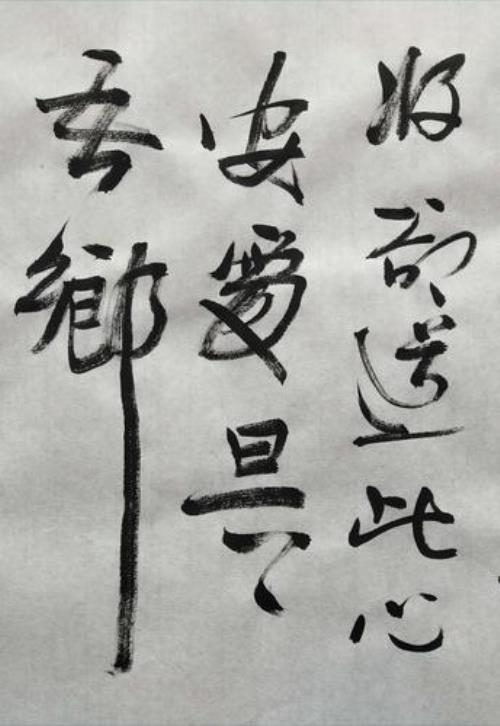 好却道此心
安處是
吾鄉